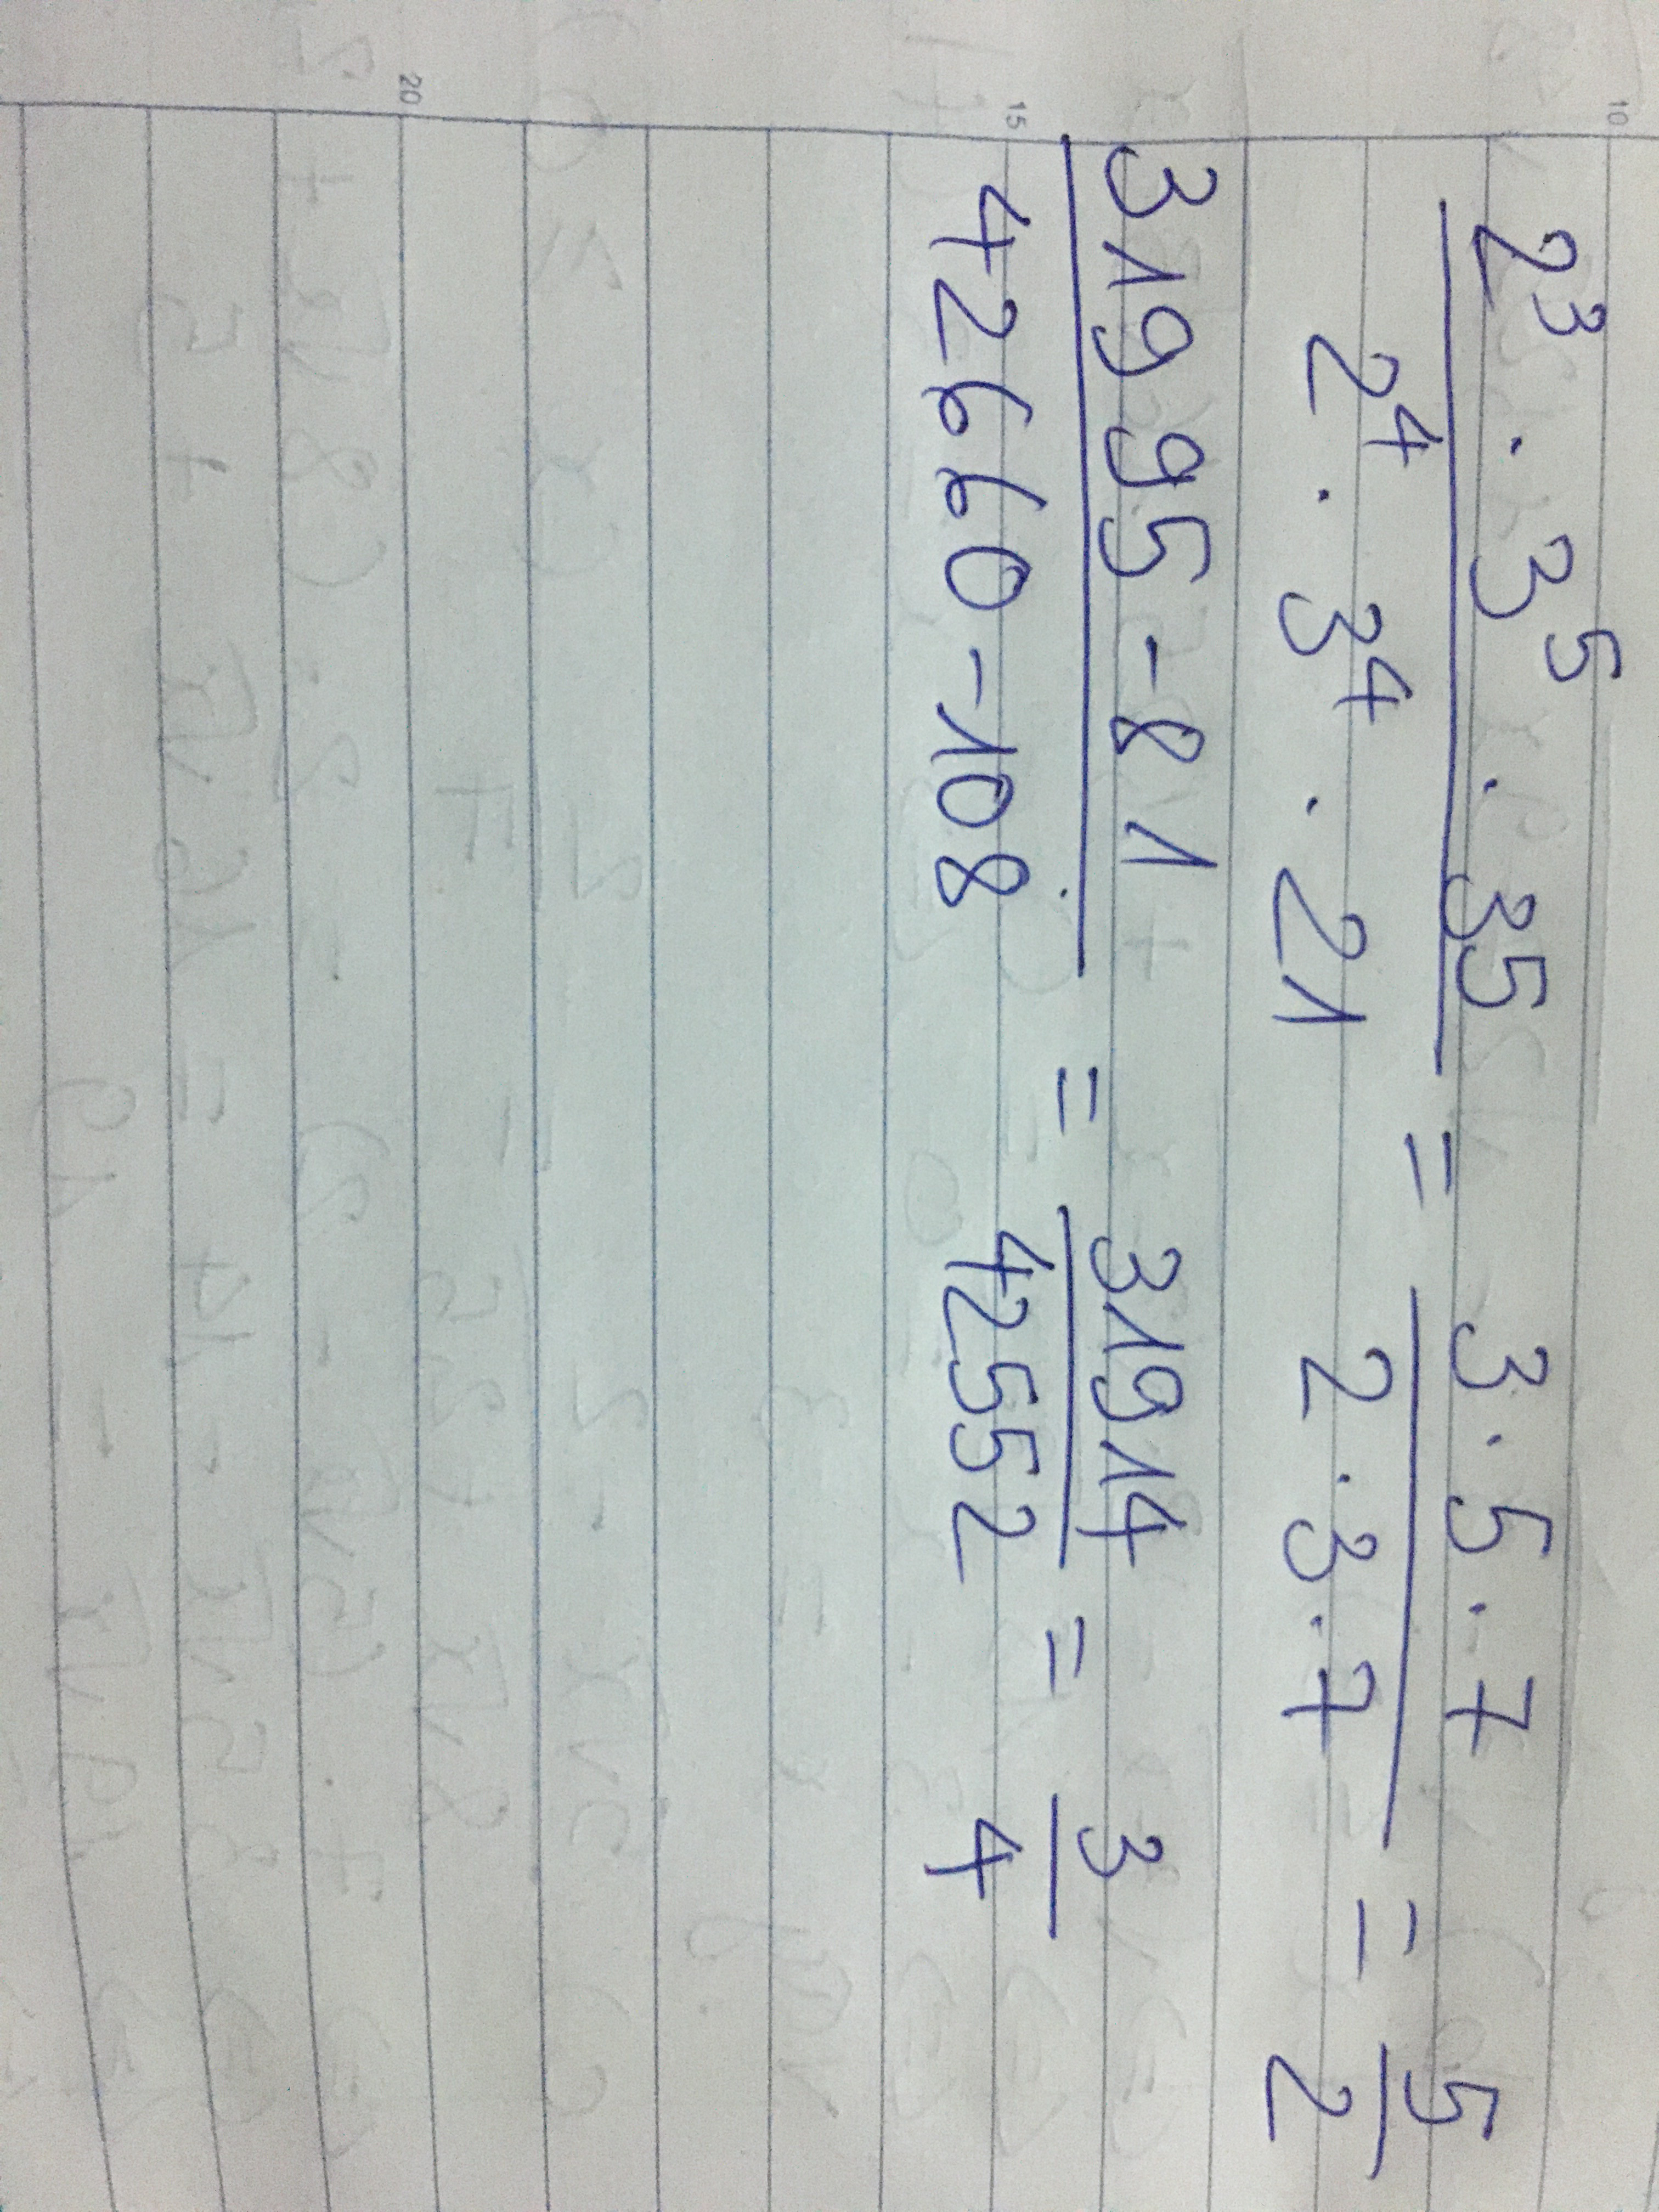 10
2³ . 3⁵ . 35 / 2⁴ . 3⁴ . 21 = 3 . 5 . 7 / 2 . 3 . 7 = 5 / 2
15
31995 - 81 / 42660 - 108 = 31914 / 42552 = 3 / 4
20